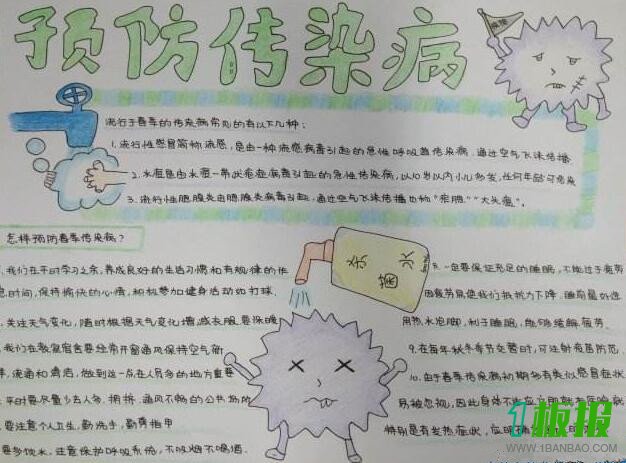 预防传染病
流行于春季的传染病常见的有以下几种：
1.流行性感冒简称流感，是由一种流感病毒引起的急性呼吸道传染病，通过空气飞沫传播
2.水痘是由水痘一带状疱疹病毒引起的急性传染病，以10岁以内小儿多发，任何年龄可传染
3.流行性腮腺炎由腮腺炎病毒引起，通过空气飞沫传播也称“痄腮”“大头瘟”。
怎样预防春季传染病？
我们在平时学习之余，养成良好的生活习惯和有规律的休
息时间，保持愉快的心情，积极参加健身活动如打球
关注天气变化，随时根据天气变化增，减衣服，要保暖
我们在教室宿舍要经常开窗通风保持空气新
流通和清洁，做到这一点在人员多的地方重要
平时要尽量少去人多、拥挤、通风不畅的公共场所
要注意个人卫生，勤洗手，勤剪指甲
要多饮水，注意保护呼吸系统，不吸烟不喝酒.
杀菌水
8.一定要保证充足的睡眠，不能过于疲劳
因疲劳易使我们抵抗力下降，睡前最好选
用热水泡脚，利于睡眠，能够缓解疲劳。
9.在每年秋冬季节交替时，可注射疫苗防范.
10.由于春季传染病初期多有类似感冒症状
易被忽视，因此身体不适应立即就去医院
特别是有发热症状，应明确
1板报
WWW.1BANBAO.COM